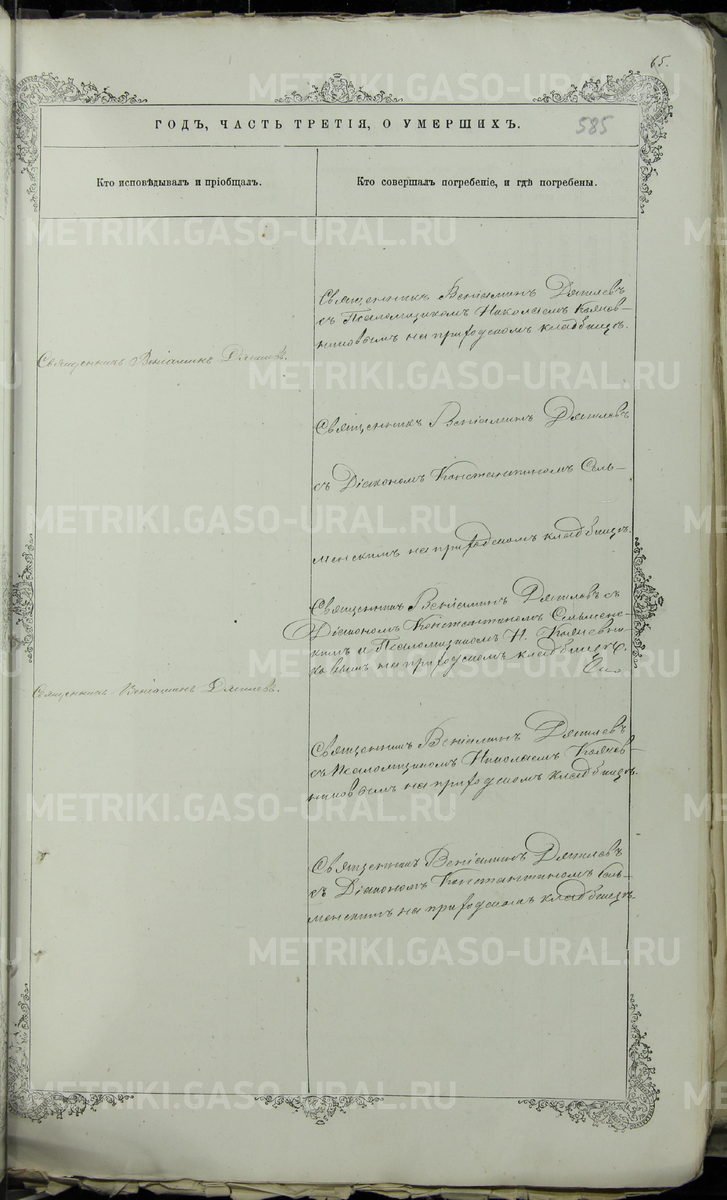 65.
ГОДЪ, ЧАСТЬ ТРЕТІЯ, О УМЕРШИХЪ.
585
Кто исповѣдывалъ и пріобщалъ.
Кто совершалъ погребеніе, и гдѣ погребены.
Священникъ Веніаминъ Дягилевъ
съ Псаломщикомъ Николаемъ
на приходскомъ кладбищѣ.
Священникъ Веніаминъ Дягилевъ.
Священникъ Веніаминъ Дягилевъ
съ Діакономъ Константиномъ Сель-
менскимъ на приходскомъ кладбищѣ.
Священникъ Веніаминъ Дягилевъ съ
Діакономъ Константиномъ Сельменс-
кимъ и Псаломщикомъ Н.
на приходскомъ кладбищѣ.
Священникъ Веніаминъ Дягилевъ.
Священникъ Веніаминъ Дягилевъ
съ Псаломщикомъ Николаемъ
на приходскомъ кладбищѣ.
Священникъ Веніаминъ Дягилевъ
съ Діакономъ Константиномъ Сель-
менскимъ на приходскомъ кладбищѣ.
METRIKI.GASO-URAL.RU